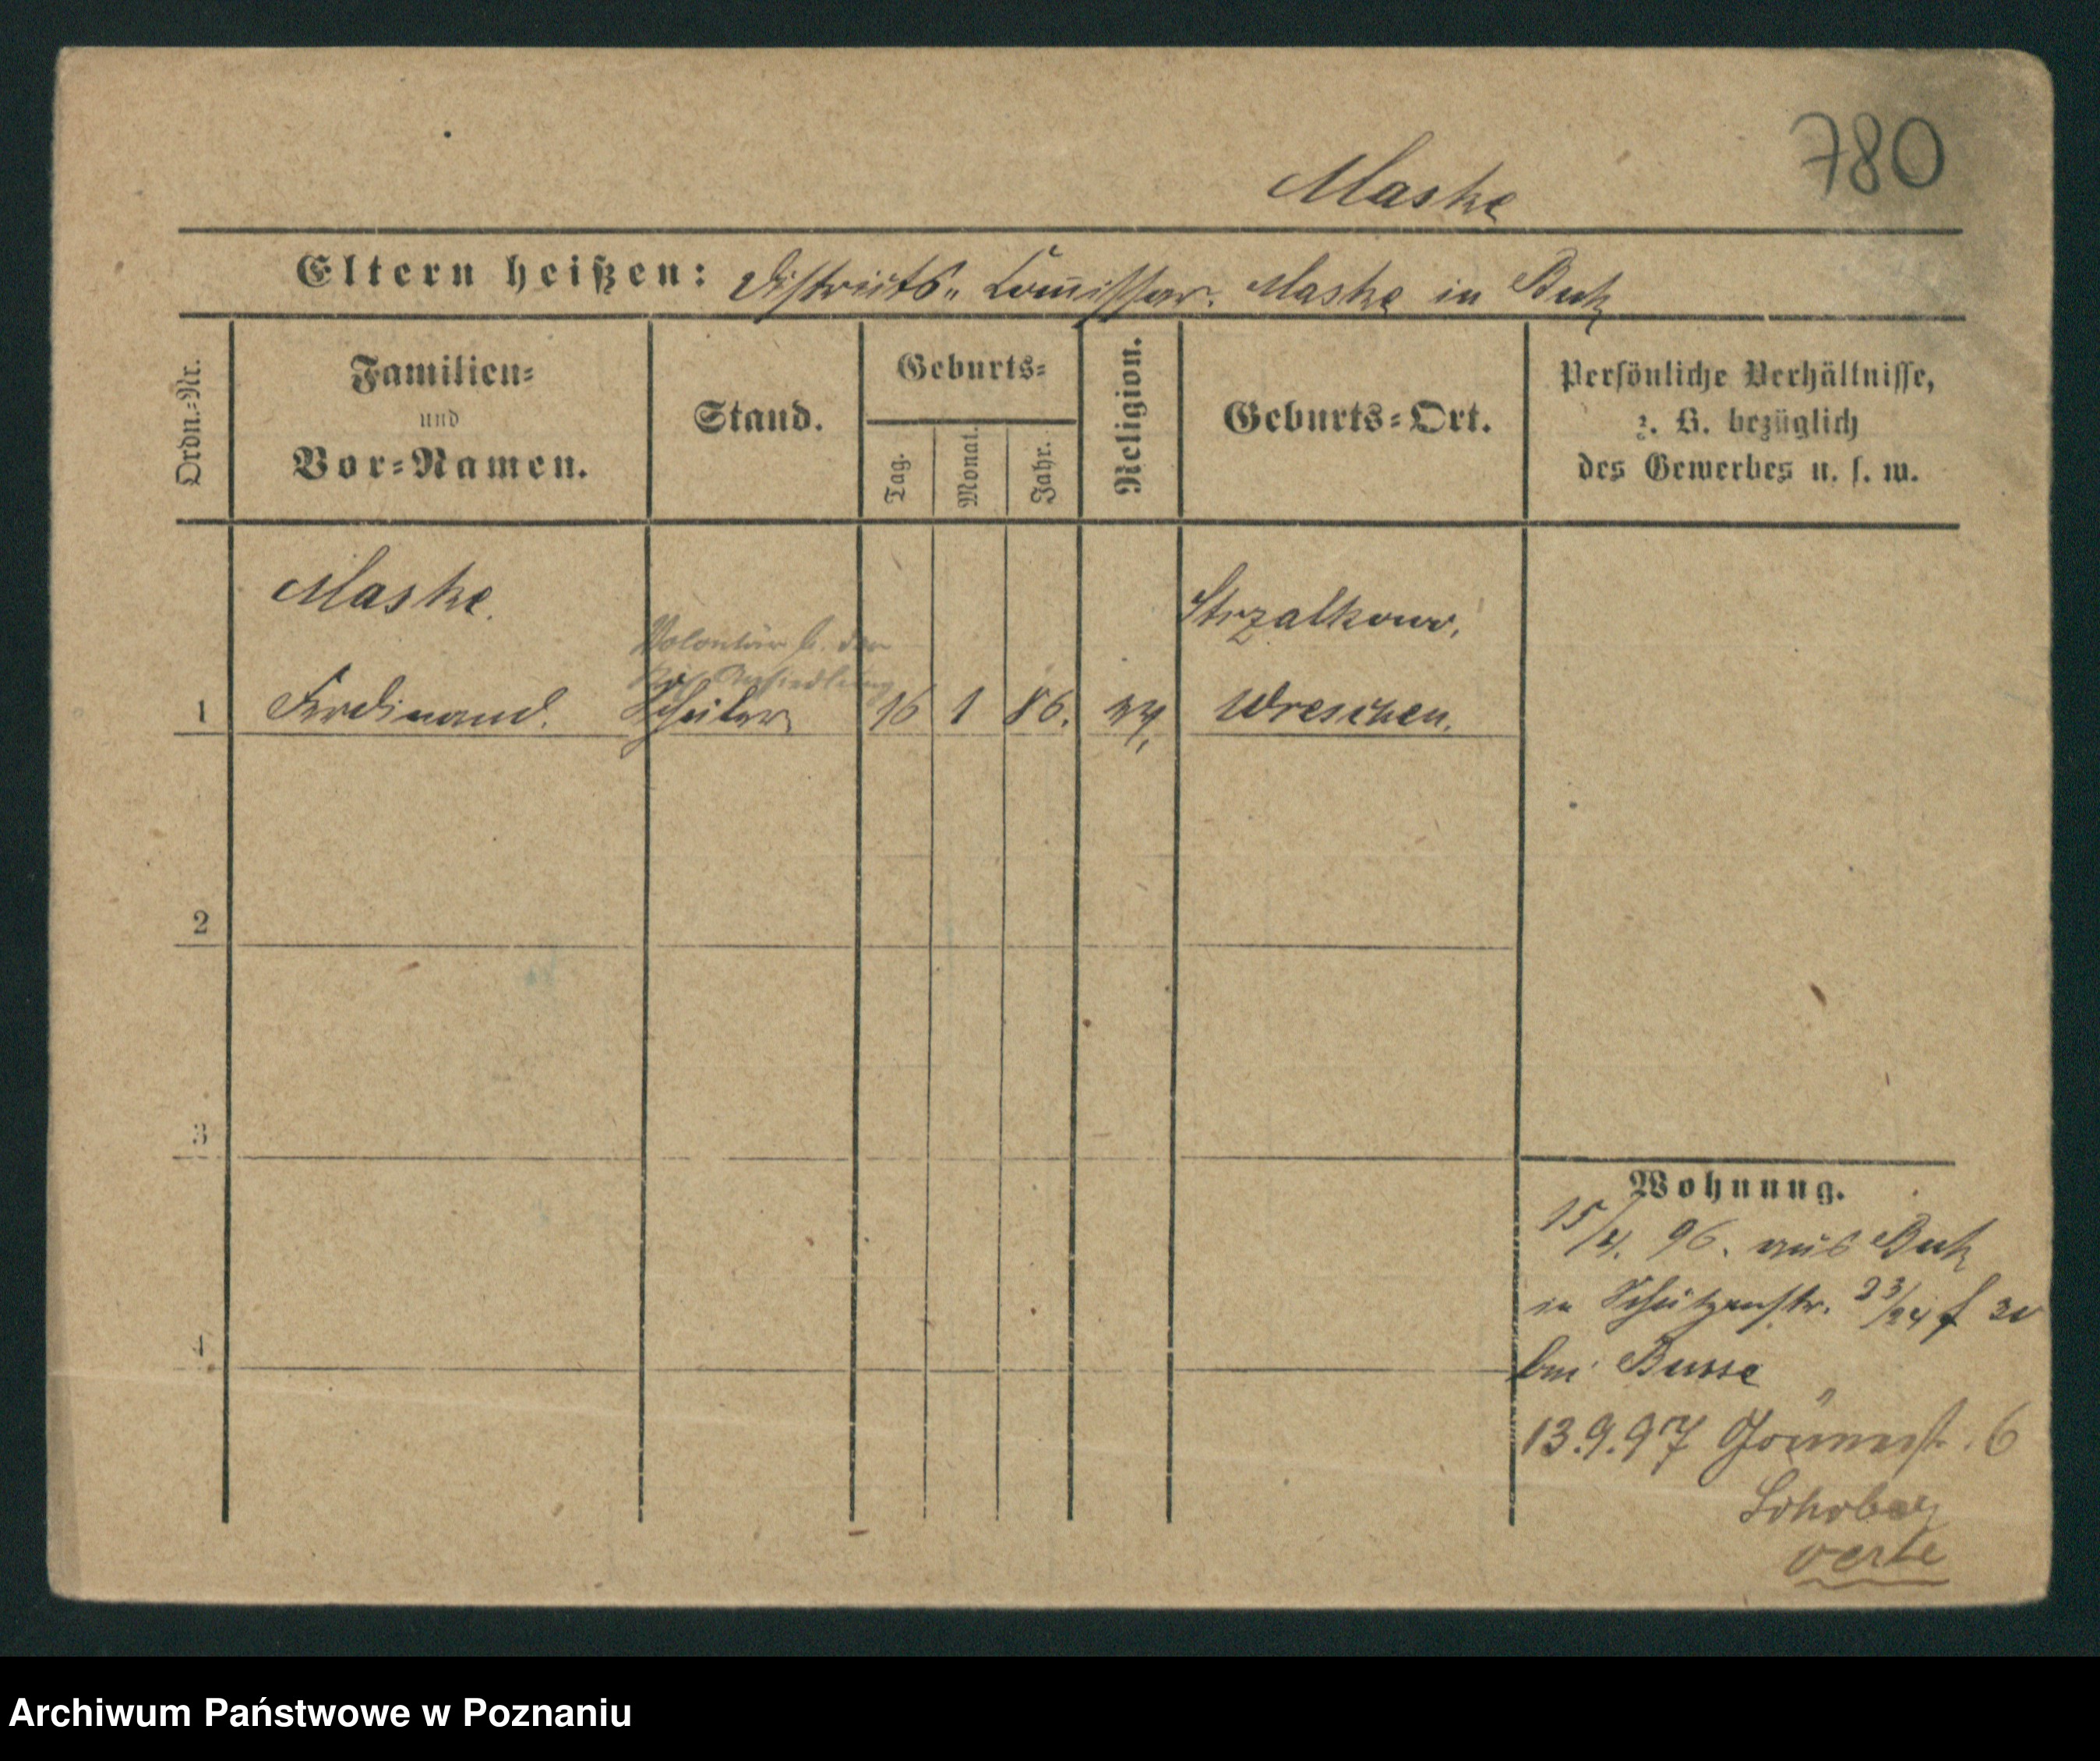 780
Maske
Eltern heißen: Distrikts-Commissar. Maske in Buk
Ordn.-Nr.
Familien-
und
Vor-Namen.
Stand.
Geburts-
Tag.
Monat.
Jahr.
Religion.
Geburts-Ort.
Persönliche Verhältnisse,
z. B. bezüglich
des Gewerbes u. s. w.
Maske.
Strzalkowo,
Volontär b. der
Ansiedlung
1 Ferdinand. Schüler 16 1 86. Wreschen.
2
3
4
Wohnung.
15/4. 96. aus Buk
in Schützenstr. 23/24
bei Busse
13.9.97 6
verte
Archiwum Państwowe w Poznaniu